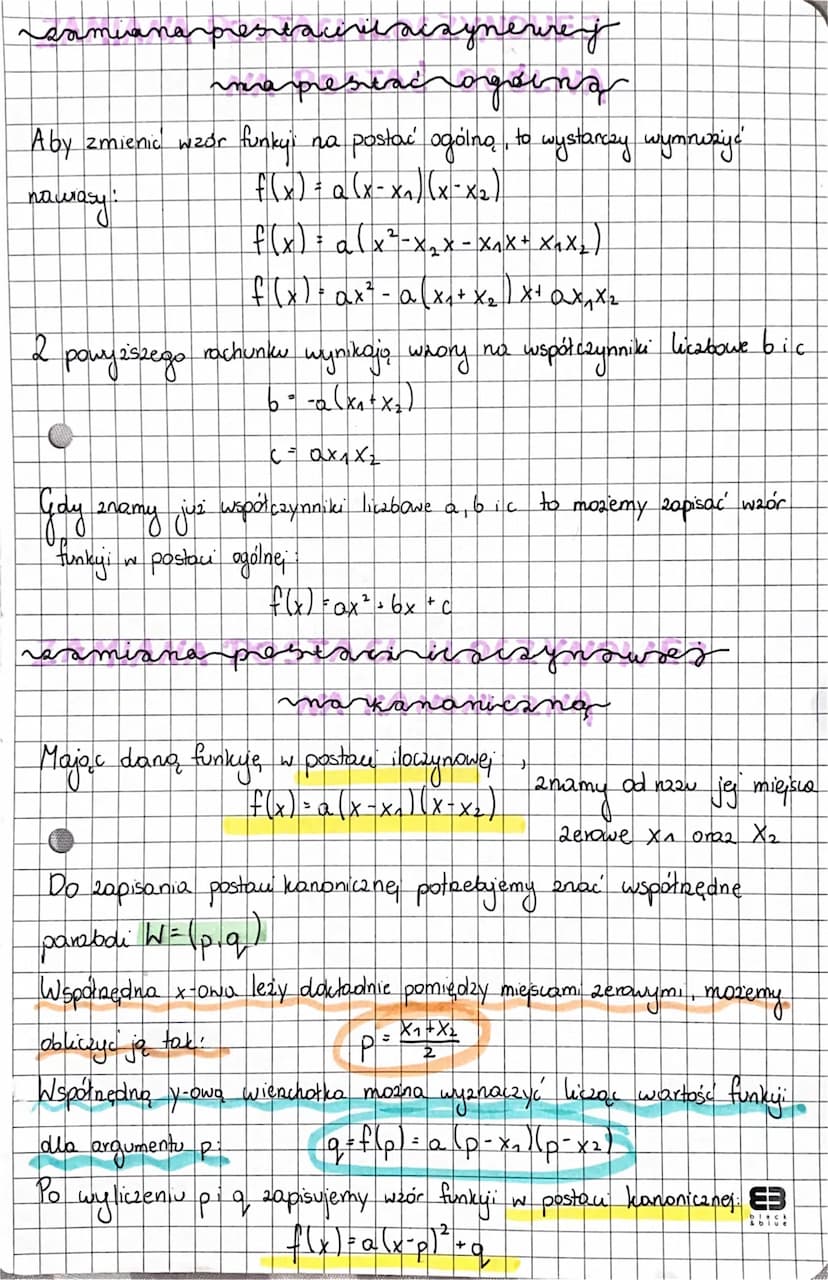 zamiana postaci iloczynowej
na postać ogólną
Aby zmienić wzór funkcji na postać ogólną, to wystarczy wymnożyć
nawiasy:
f(x) = a(x-x₁)(x-x₂)
f(x) = a(x²-x₂x-x₁x+x₁x₂)
f(x) = ax² - a(x₁+x₂)x + ax₁x₂
Z powyższego rachunku wynikają wzory na współczynniki liczbowe b i c
b = -a(x₁+x₂)
c = ax₁x₂
Gdy znamy już współczynniki liczbowe a, b i c to możemy zapisać wzór
funkcji w postaci ogólnej:
f(x) = ax² + bx + c
zamiana postaci iloczynowej
na kanoniczną
Mając daną funkcję w postaci iloczynowej,
f(x) = a(x-x₁)(x-x₂)
znamy od razu jej miejsca
zerowe x₁ oraz x₂
Do zapisania postaci kanonicznej potrzebujemy znać współrzędne
paraboli W=(p,q)
Współrzędna x-owa leży dokładnie pomiędzy miejscami zerowymi, możemy
obliczyć ją tak: p = (x₁+x₂)/2
Współrzędną y-ową wierzchołka można wyznaczyć licząc wartość funkcji
dla argumentu p: q = f(p) = a(p-x₁)(p-x₂)
Po wyliczeniu p i q zapisujemy wzór funkcji w postaci kanonicznej:
f(x) = a(x-p)² + q
black
&blue